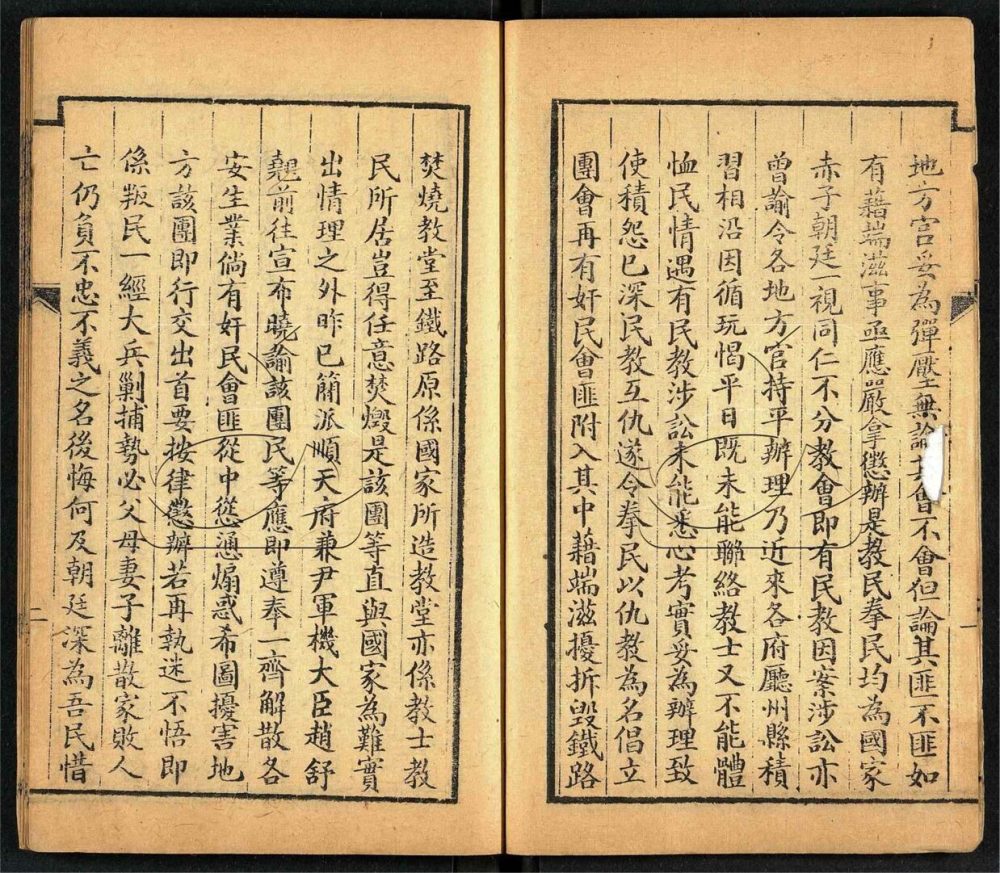 地方官妥為彈壓無論其會不會但論其匪不匪如
有藉端滋事亟應嚴拿懲辦是教民拳民均為國家
赤子朝廷視同仁不分教會即有民教因案涉訟亦
曾諭令各地方官持平辦理乃近來各府廳州縣積
習相沿因循玩愒平日既未能聯絡教士又不能體
恤民情遇有民教涉訟未能悉心考實妥為辦理致
使積怨已深民教互仇遂令拳民以仇教為名倡立
團會再有奸民會匪附入其中藉端滋擾拆毀鐵路
焚燒教堂至鐵路原係國家所造教堂亦係教士教
民所居豈得任意焚燬是該團等直與國家為難實
出情理之外昨已簡派順天府兼尹軍機大臣趙舒
翹前往宣布曉諭該團民等應即遵奉一齊解散各
安生業倘有奸民會匪從中慫慂煽惑希圖擾害地
方該團即行交出首要按律懲辦若再執迷不悟即
係叛民一經大兵剿捕勢必父母妻子離散家敗人
亡仍負不忠不義之名後悔何及朝廷深為吾民惜
二